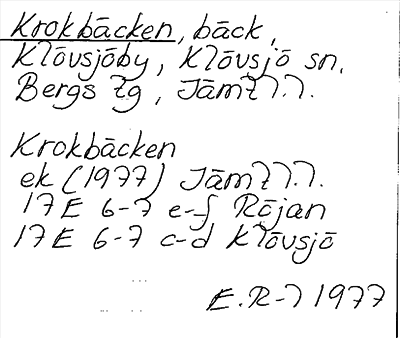 Krokbäcken, bäck,
Klövsjöby, Klövsjö sn.
Bergs tg, Jämtl.l.
Krokbäcken
ek (1977) Jämtl.l.
17E 6-7 e-f Röjan
17E 6-7 c-d Klövsjö
E.R-l 1977